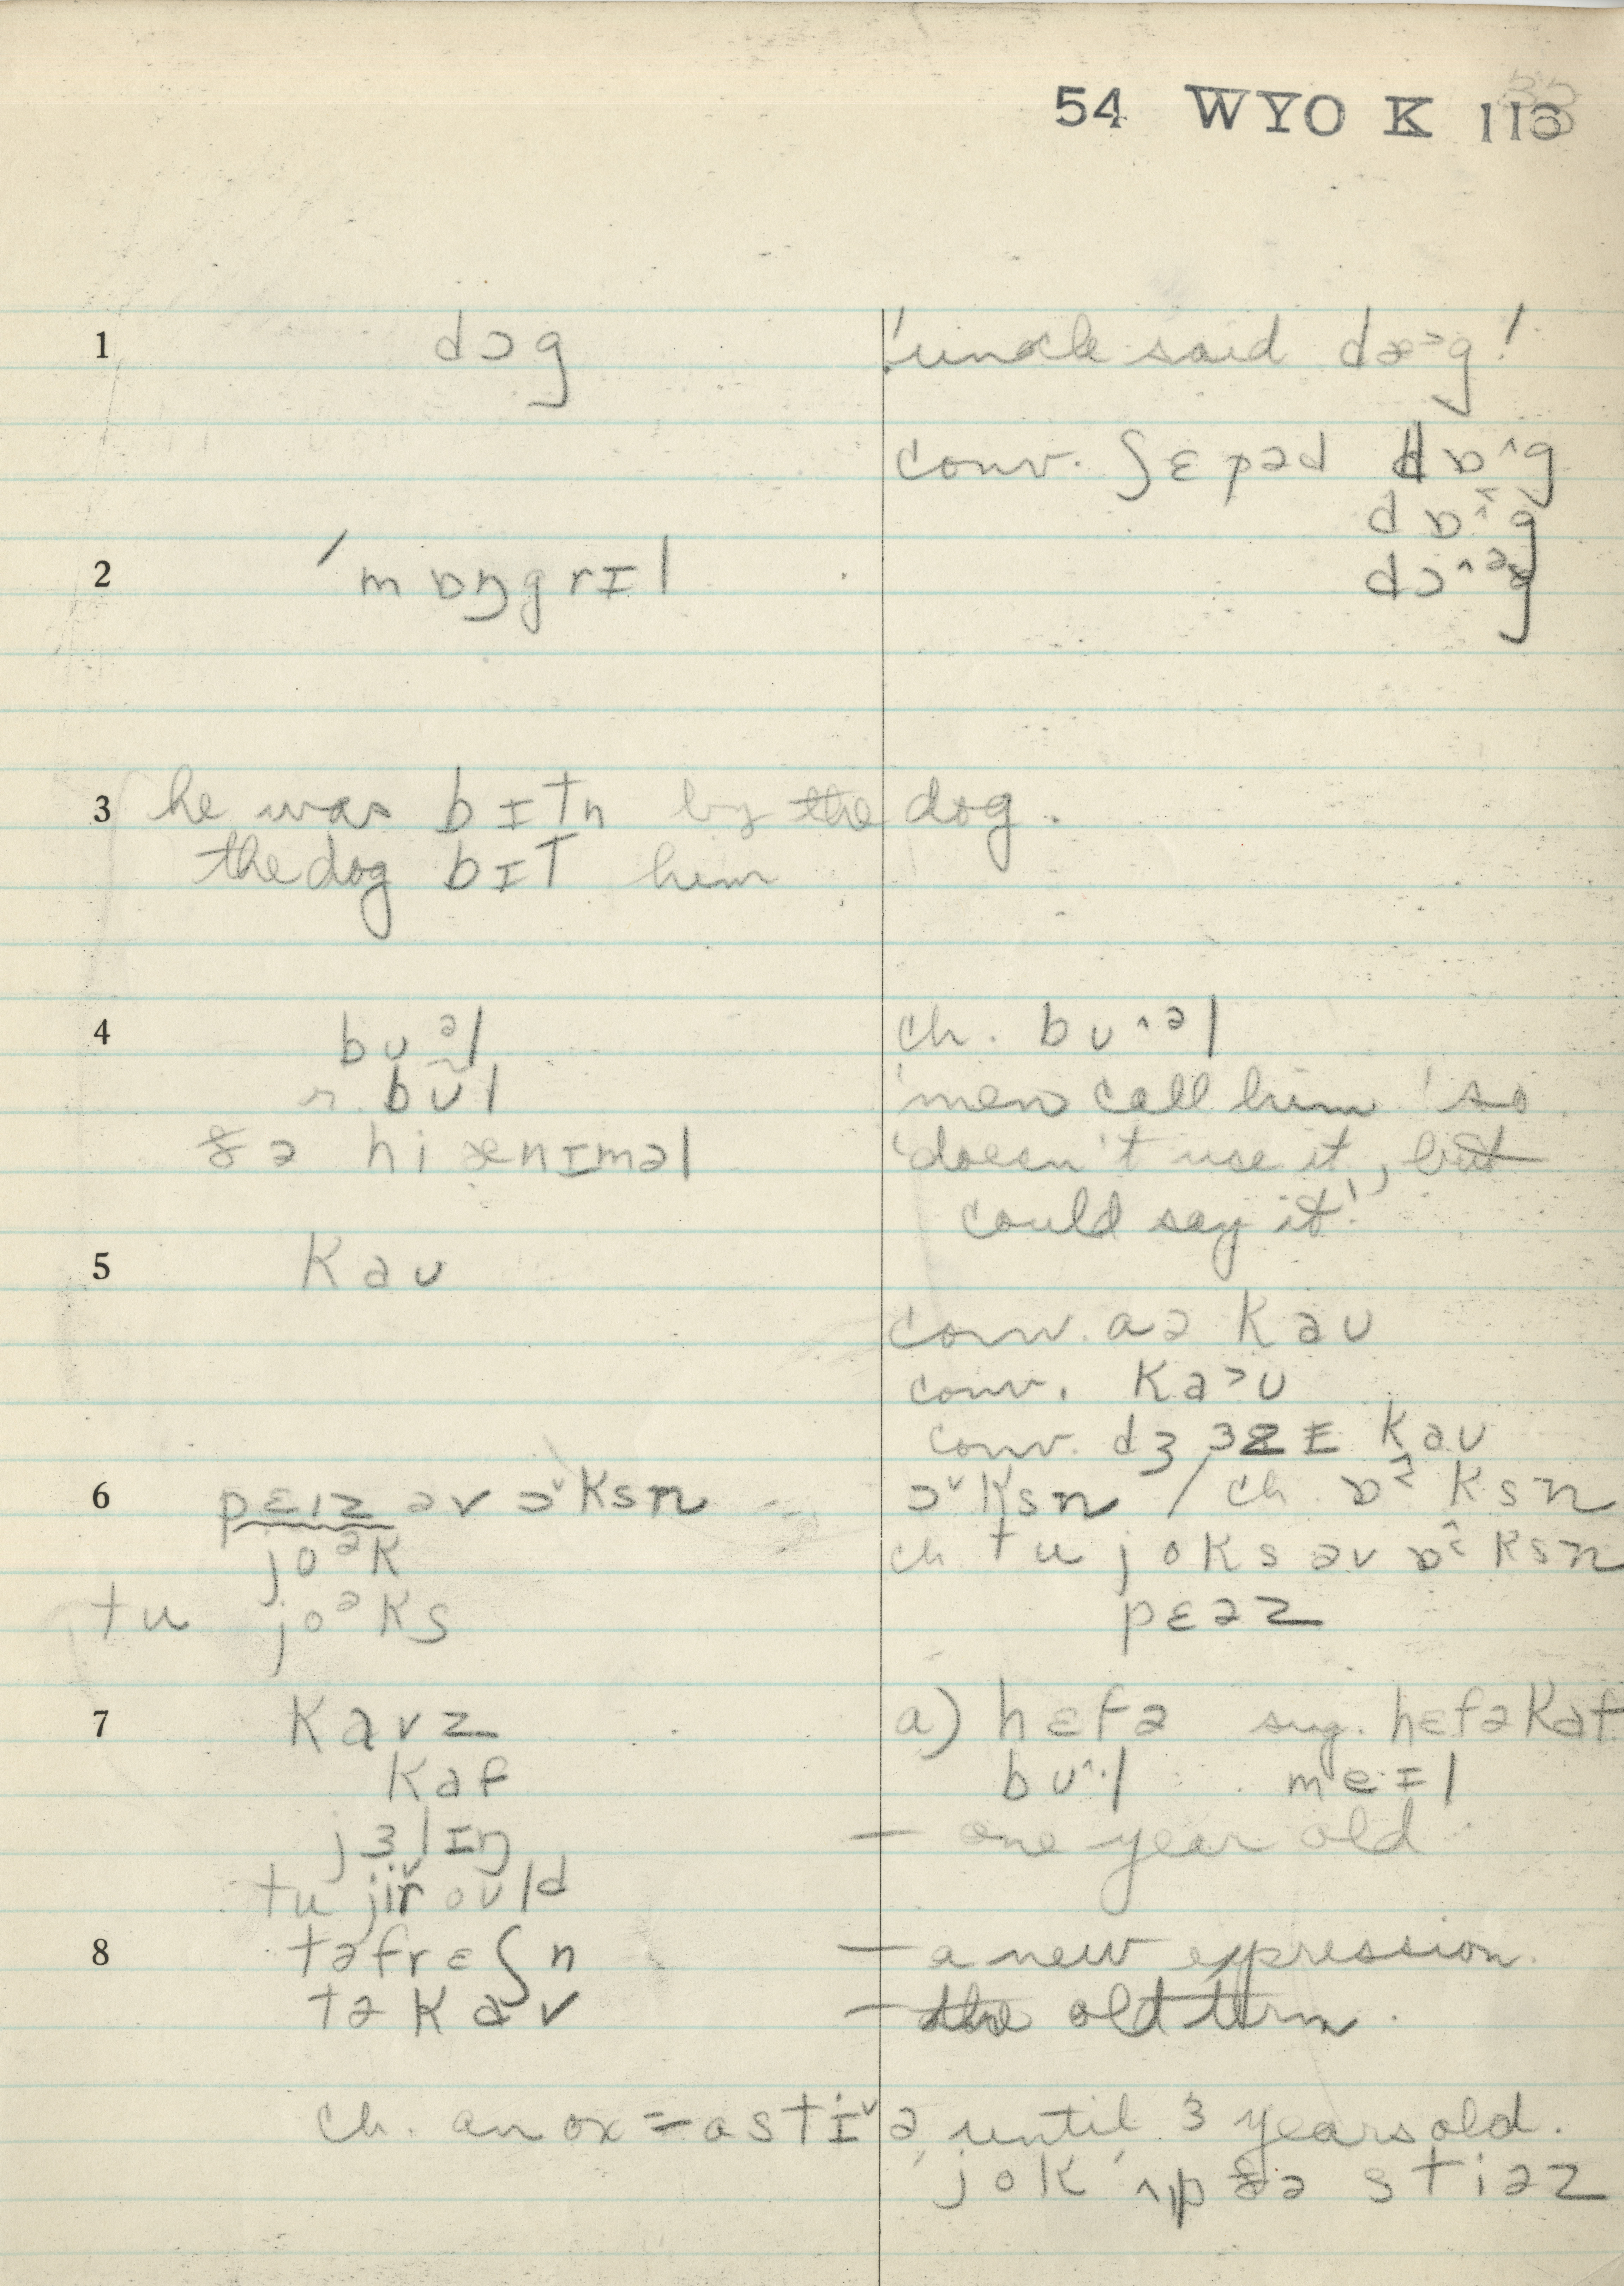 54 WYO K 113
1 dɔg 'uncle said dæ>g!
conv. ʃɛpəd dɒ^g
dɒ^g
2 ˈmɒŋgrɪl dɔ^əg
3 he was bɪtn by the dog.
the dog bɪt him
4 bʊəl ch. bʊ^əl
r. bʊl 'men call him' so
ðə hi ænɪməl 'doesn't use it, but
could say it'
5 kaʊ
conv. aə kaʊ
conv. ka>ʊ
conv. dʒɜzɪ kaʊ
6 pɛɪz əv ɔ˅ksn ɔ˅ksn / ch ɒ^ksn
joək ch tu joks əv ɒ^ksn
tu joəks pɛəz
7 kavz a) hɛfə sug. hɛfəkaf
kaf bʊ^l meɪl
jɜlɪŋ — one year old
tu jir oʊld
8 təfrɛʃn — a new expression.
tə kav — the old term.
ch. an ox = a stɪ˅ə until 3 years old.
'jok' ʌp ðə stiəz